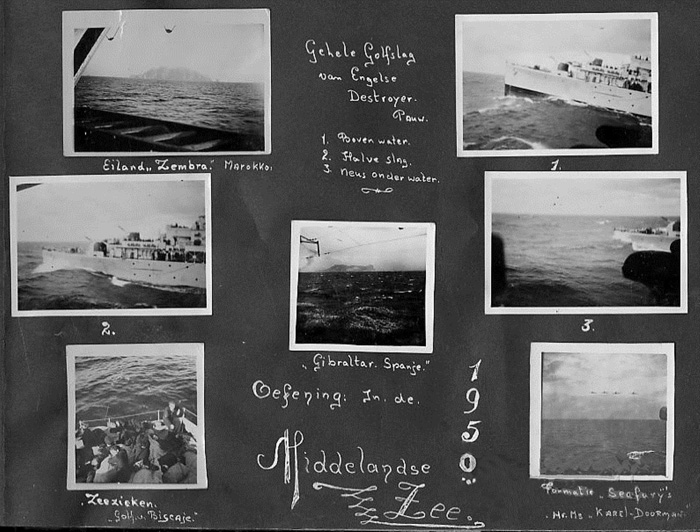 Gehele Golfslag
van Engelse
Destroyer.
Pauw.
1. Boven water.
2. Halve slag.
3. Neus onder water.
Eiland „Zembra." Marokko.
1.
2.
„Gibraltar. Spanje."
3.
Oefening: In. de.
Middelandse
Zee.
1950.
„Zeezieken.
„Golf. v. Biscaje."
Formatie „Seafury's
Hr. Ms „Karel-Doorman.